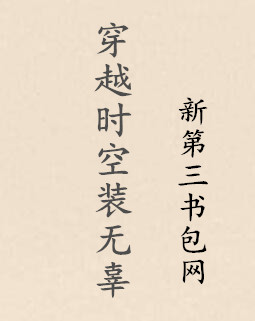 穿越时空装无辜
新第三书包网